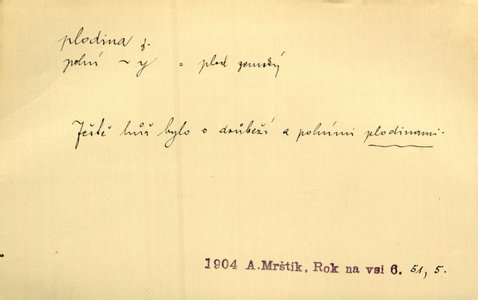 plodina f.
polní ~y = plod zemský
Ještě hůř bylo o drůbeží a polními plodinami.
1904 A.Mrštík, Rok na vsi 6. 51, 5.